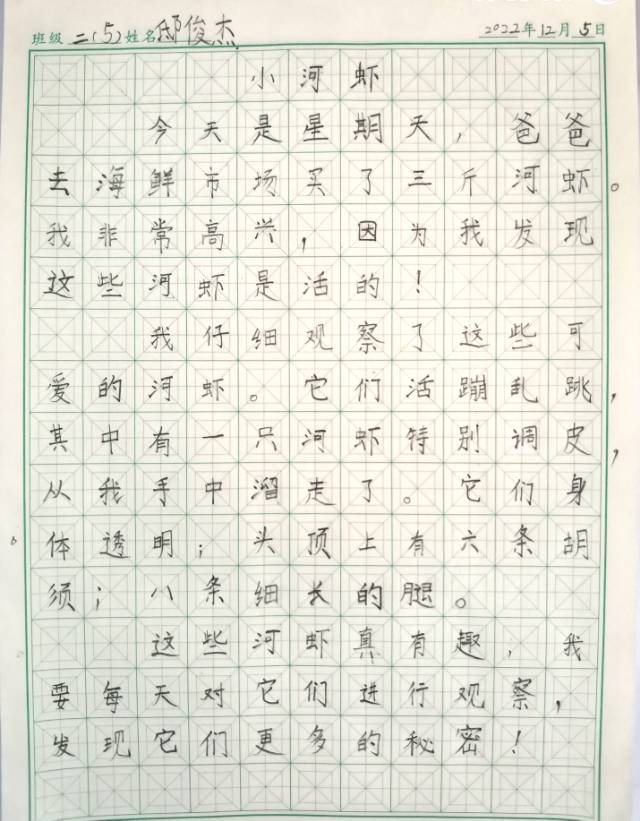 班级 二(5) 姓名 邸俊杰 2022年12月5日
小河虾
今天是星期天，爸爸
去海鲜市场买了三斤河虾。
我非常高兴，因为我发现
这些河虾是活的！
我仔细观察了这些可
爱的河虾。它们活蹦乱跳，
其中有一只河虾特别调皮，
从我手中溜走了。它们身
体透明；头顶上有六条胡
须；八条细长的腿。
这些河虾真有趣，我
要每天对它们进行观察，
发现它们更多的秘密！